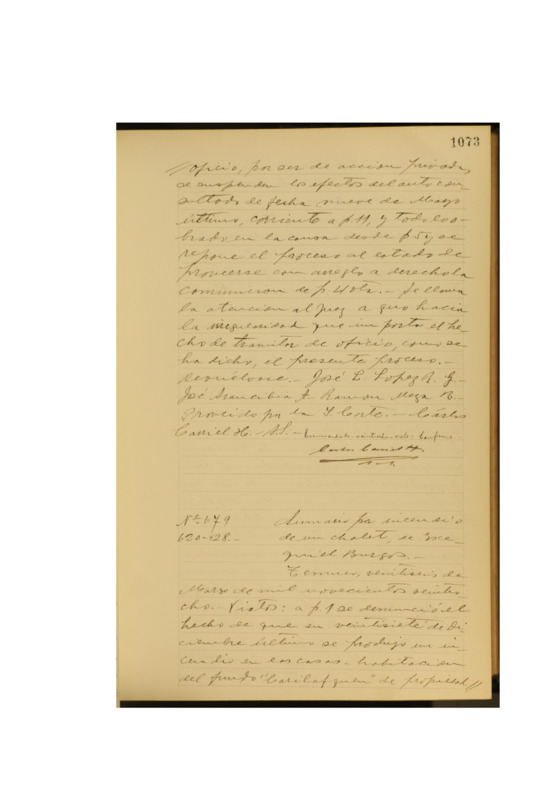 1073
oficio, por ser de accion privada,
se suspenden los efectos del auto con-
sultado de fecha nueve de Marzo
último, corriente a f. 11, y todo lo o-
brado en la causa desde f. 5 y se
repone el proceso al estado de
proveerse con arreglo a derecho la
de f. 4 vta. - Se llama
la atencion al Juez a quo hacia
la irregularidad que importa el he-
cho de tramitar de oficio, como se
ha dicho, el presente proceso. -
Devuélvase. - José L. Lopez R. G. -
José Arancibia A. Ramon Meza R. -
Proveido por la I. Corte. - Cárlos
Carriel H. S.S. -
Carlos Carriel H.
No. 679
620-128. -
Sumario por incendio
de un chalet, de Eze-
quiel Burgos. -
Temuco, veintiseis de
Marzo de mil novecientos veintio-
cho. - Vistos: a f. 1 se denunció el
hecho de que en veintisiete de Di-
ciembre último se produjo un in-
cendio en las casas-habitacion
del fundo de propiedad //